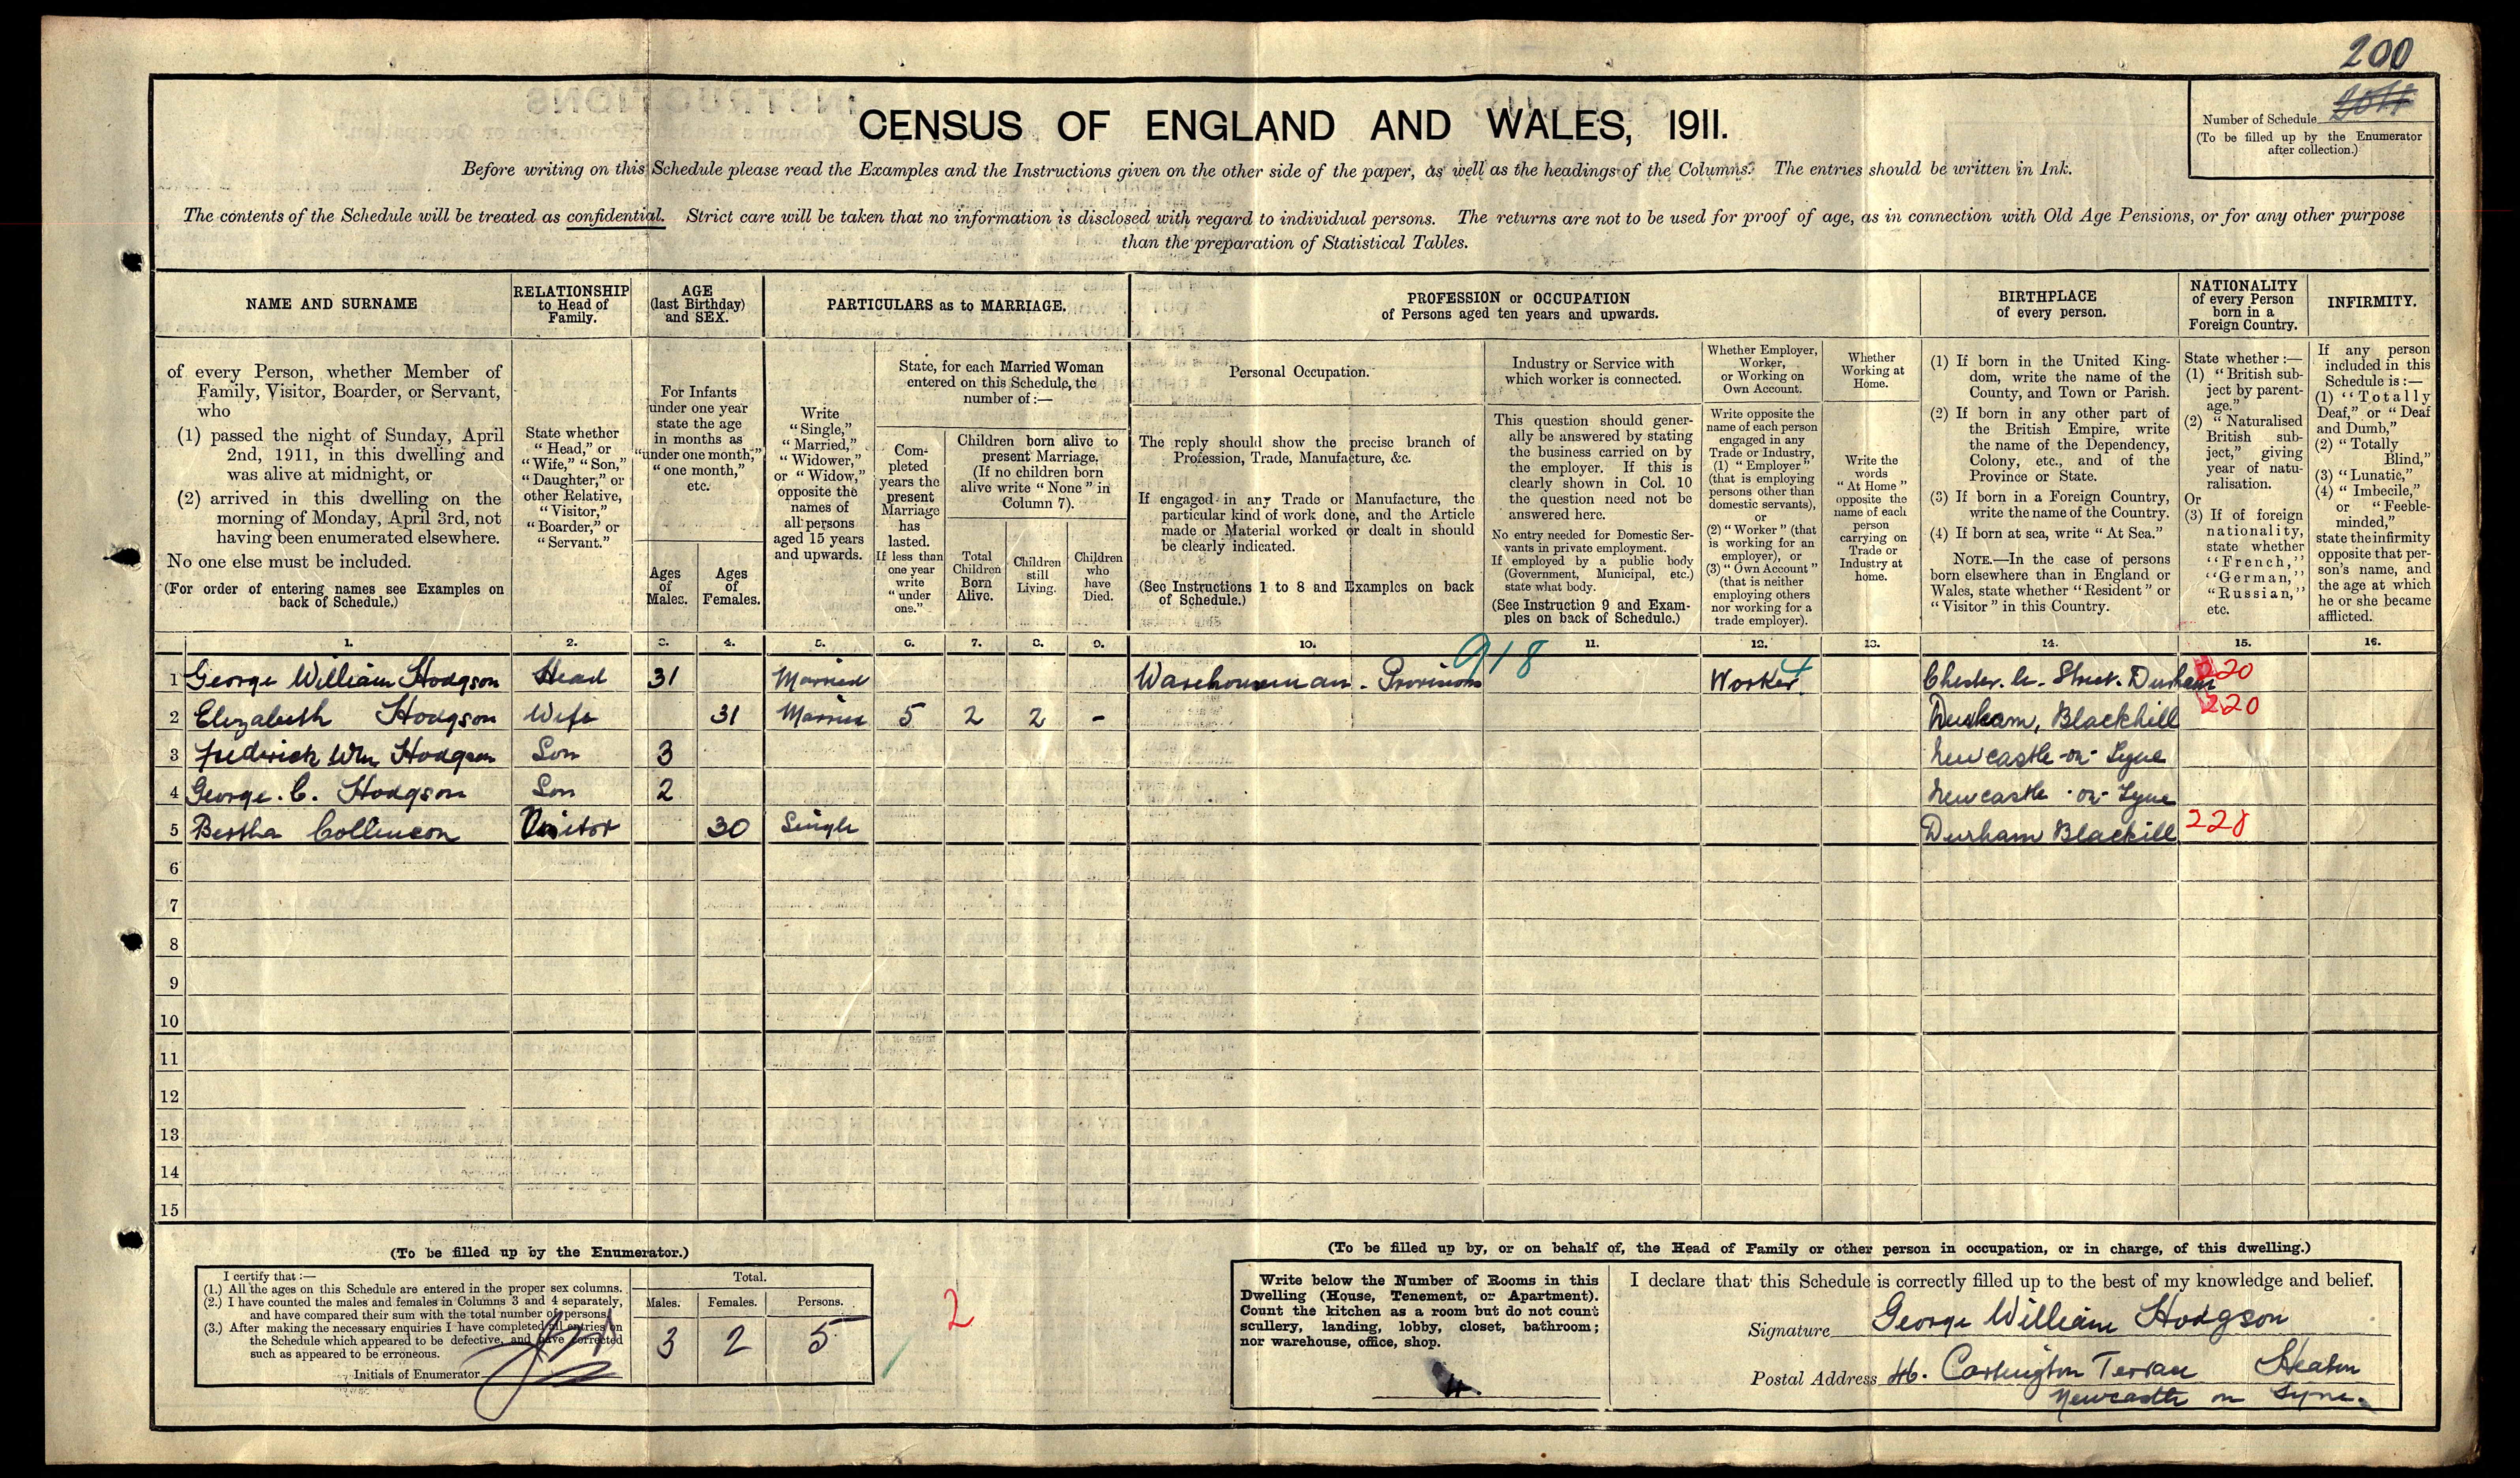 200
CENSUS OF ENGLAND AND WALES, 1911.
Number of Schedule
(To be filled up by the Enumerator
after collection.)
Before writing on this Schedule please read the Examples and the Instructions given on the other side of the paper, as well as the headings of the Columns. The entries should be written in Ink.
The contents of the Schedule will be treated as confidential. Strict care will be taken that no information is disclosed with regard to individual persons. The returns are not to be used for proof of age, as in connection with Old Age Pensions, or for any other purpose
than the preparation of Statistical Tables.
NAME AND SURNAME
of every Person, whether Member of
Family, Visitor, Boarder, or Servant,
who
(1) passed the night of Sunday, April
2nd, 1911, in this dwelling and
was alive at midnight, or
(2) arrived in this dwelling on the
morning of Monday, April 3rd, not
having been enumerated elsewhere.
No one else must be included.
(For order of entering names see Examples on
back of Schedule.)
RELATIONSHIP
to Head of
Family.
State whether
"Head," or
"Wife," "Son,"
"Daughter," or
other Relative,
"Visitor,"
"Boarder," or
"Servant."
AGE
(last Birthday)
and SEX.
For Infants
under one year
state the age
in months as
"under one month,"
"one month,"
etc.
Ages
of
Males.
Ages
of
Females.
PARTICULARS as to MARRIAGE.
Write
"Single,"
"Married,"
"Widower,"
or "Widow,"
opposite the
names of
all persons
aged 15 years
and upwards.
State, for each Married Woman
entered on this Schedule, the
number of:—
Com-
pleted
years the
present
Marriage
has
lasted.
If less than
one year
write
"under
one."
Children born alive to
present Marriage.
(If no children born
alive write "None" in
Column 7).
Total
Children
Born
Alive.
Children
still
Living.
Children
who
have
Died.
PROFESSION or OCCUPATION
of Persons aged ten years and upwards.
Personal Occupation.
The reply should show the precise branch of
Profession, Trade, Manufacture, &c.
If engaged in any Trade or Manufacture, the
particular kind of work done, and the Article
made or Material worked or dealt in should
be clearly indicated.
(See Instructions 1 to 8 and Examples on back
of Schedule.)
Industry or Service with
which worker is connected.
This question should gener-
ally be answered by stating
the business carried on by
the employer. If this is
clearly shown in Col. 10
the question need not be
answered here.
No entry needed for Domestic Ser-
vants in private employment.
If employed by a public body
(Government, Municipal, etc.)
state what body.
(See Instruction 9 and Exam-
ples on back of Schedule.)
Whether Employer,
Worker,
or Working on
Own Account.
Write opposite the
name of each person
engaged in any
Trade or Industry,
(1) "Employer"
(that is employing
persons other than
domestic servants),
or
(2) "Worker" (that
is working for an
employer), or
(3) "Own Account"
(that is neither
employing others
nor working for a
trade employer).
Whether
Working at
Home.
Write the
words
"At Home"
opposite the
name of each
person
carrying on
Trade or
Industry at
home.
BIRTHPLACE
of every person.
(1) If born in the United King-
dom, write the name of the
County, and Town or Parish.
(2) If born in any other part of
the British Empire, write
the name of the Dependency,
Colony, etc., and of the
Province or State.
(3) If born in a Foreign Country,
write the name of the Country.
(4) If born at sea, write "At Sea."
NOTE.—In the case of persons
born elsewhere than in England or
Wales, state whether "Resident" or
"Visitor" in this Country.
NATIONALITY
of every Person
born in a
Foreign Country.
State whether:—
(1) "British sub-
ject by parent-
age."
(2) "Naturalised
British sub-
ject," giving
year of natu-
ralisation.
Or
(3) If of foreign
nationality,
state whether
"French,"
"German,"
"Russian,"
etc.
INFIRMITY.
If any person
included in this
Schedule is:—
(1) "Totally
Deaf," or "Deaf
and Dumb,"
(2) "Totally
Blind,"
(3) "Lunatic,"
(4) "Imbecile,"
or "Feeble-
minded,"
state the infirmity
opposite that per-
son's name, and
the age at which
he or she became
afflicted.
1. 2. 3. 4. 5. 6. 7. 8. 9. 10. 11. 12. 13. 14. 15. 16.
918 4
1 George William Hodgson Head 31 Married Warehouseman. Provisions Worker Chester. le. Street. Durham 220
2 Elizabeth Hodgson Wife 31 Married 5 2 2 - Durham, Blackhill 220
3 Frederick Wm Hodgson Son 3 Newcastle-on-Tyne
4 George. C. Hodgson Son 2 Newcastle-on-Tyne
5 Bertha Collinson Visitor 30 Single Durham Blackill 220
6
7
8
9
10
11
12
13
14
15
(To be filled up by the Enumerator.)
I certify that:—
(1.) All the ages on this Schedule are entered in the proper sex columns.
(2.) I have counted the males and females in Columns 3 and 4 separately,
and have compared their sum with the total number of persons.
(3.) After making the necessary enquiries I have completed all entries on
the Schedule which appeared to be defective, and have corrected
such as appeared to be erroneous.
Initials of Enumerator
Total.
Males. Females. Persons.
3 2 5
2
(To be filled up by, or on behalf of, the Head of Family or other person in occupation, or in charge, of this dwelling.)
Write below the Number of Rooms in this
Dwelling (House, Tenement, or Apartment).
Count the kitchen as a room but do not count
scullery, landing, lobby, closet, bathroom;
nor warehouse, office, shop.
4
I declare that this Schedule is correctly filled up to the best of my knowledge and belief.
Signature George William Hodgson
Postal Address 46. Cartington Terrace Heaton
Newcastle on Tyne.